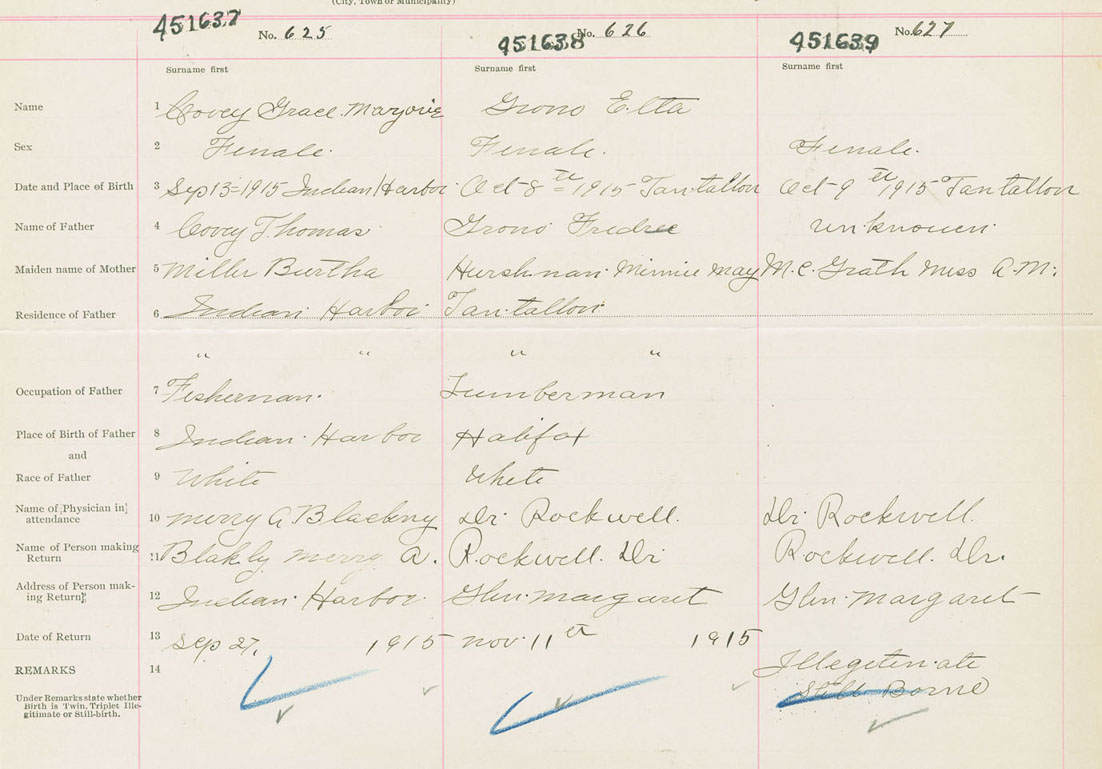 (City, Town or Municipality)
451637 No. 625 451638 No. 626 451639 No. 627
Surname first Surname first Surname first
Name 1 Covey Grace Marjorie Grono Etta
Sex 2 Female. Female. Female.
Date and Place of Birth 3 Sep 13=1915 Indian Harbor Oct-8th 1915 Tantallon Oct-9th 1915 Tantallon
Name of Father 4 Covey Thomas Grono unknouen
Maiden name of Mother 5 Miller Burtha Hurshman Minnie May M.c. Grath Miss A.M.
Residence of Father 6 Indian Harbor Tantallon
" " " "
Occupation of Father 7 Fisherman. Lumberman
Place of Birth of Father 8 Indian Harbor Halifax
and
Race of Father 9 White White
Name of Physician in
attendance 10 A Dr Rockwell. Dr Rockwell.
Name of Person making
Return 11 Blakly A. Rockwell. Dr Rockwell. Dr.
Address of Person mak-
ing Return 12 Indian Harbor. Glen Margaret Glen Margaret
Date of Return 13 Sep 27, 1915 Nov 11th 1915
REMARKS 14 Illegetimate
Under Remarks state whether
Birth is Twin, Triplet Ille-
gitimate or Still-birth. Still Borne